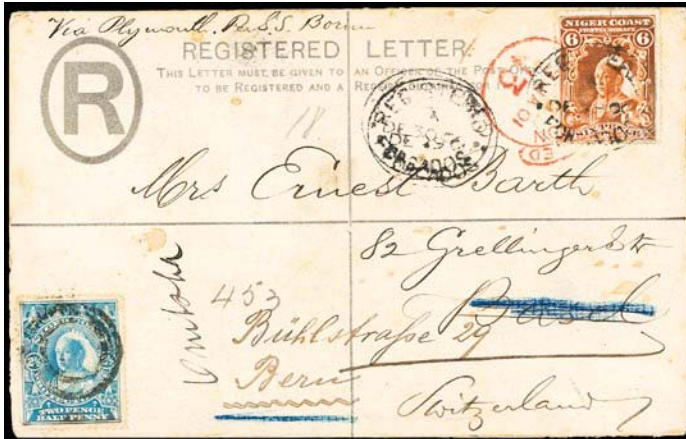 Via Plymouth. Per S.S. Bornu
REGISTERED LETTER.
THIS LETTER MUST BE GIVEN TO AN OFFICER OF THE POST OF
TO BE REGISTERED AND A RECEIPT
R
NIGER COAST
6 6
SIX PENCE
18
REGISTERED
DE 30
Mrs Ernest Barth
82 Grellingerstr
Basel
453
Bühlstraße 29
Bern
Switzerland
TWO PENCE
HALF PENNY